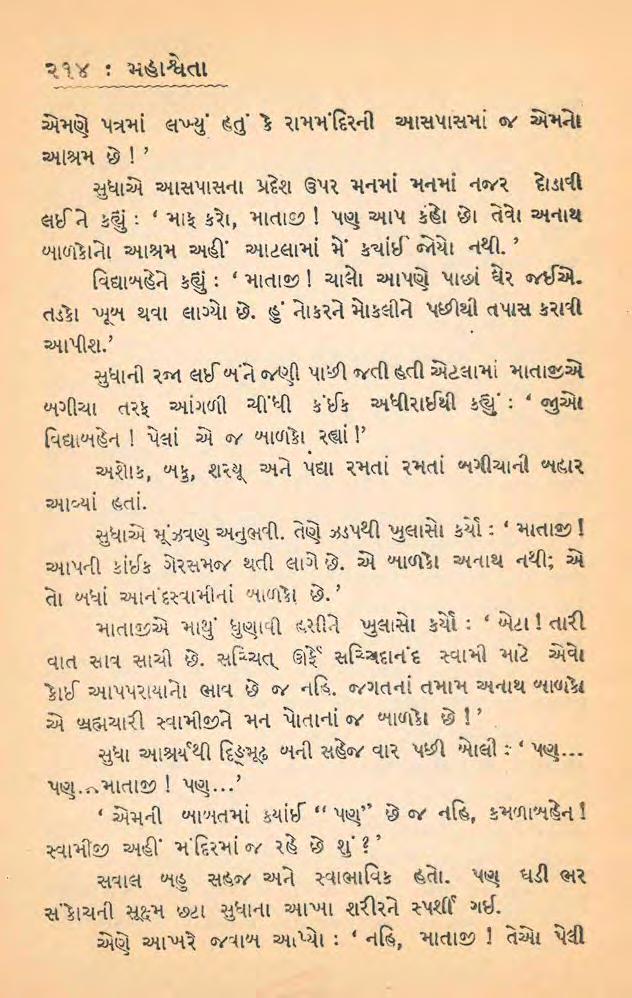 ૨૧૪ : મહાશ્વેતા
એમણે પત્રમાં લખ્યું હતું કે રામમંદિરની આસપાસમાં જ એમનો
આશ્રમ છે ! ’
સુધાએ આસપાસના પ્રદેશ ઉપર મનમાં મનમાં નજર દોડાવી
લઈ ને કહ્યું : ‘ માફ કરો, માતાજી ! પણ આપ કહો છો તેવો અનાથ
બાળકોનો આશ્રમ અહીં આટલામાં મેં કયાંઈ જોયો નથી. ’
વિદ્યાબહેને કહ્યું : ‘ માતાજી ! ચાલો આપણે પાછાં ઘેર જઈએ.
તડકો ખૂબ થવા લાગ્યો છે. હું નોકરને મોકલીને પછીથી તપાસ કરાવી
આપીશ.’
સુધાની રજા લઈ બંને જણી પાછી જતી હતી એટલામાં માતાજીએ
બગીચા તરફ આંગળી ચીંધી કંઈક અધીરાઈથી કહ્યું : ‘ જુઓ
વિદ્યાબહેન ! પેલાં એ જ બાળકો રહ્યાં !’
અશોક, બકુ, શરયૂ અને પદ્મા રમતાં રમતાં બગીચાની બહાર
આવ્યાં હતાં.
સુધાએ મૂંઝવણ અનુભવી. તેણે ઝડપથી ખુલાસો કર્યો : ‘ માતાજી !
આપની કાંઈક ગેરસમજ થતી લાગે છે. એ બાળકો અનાથ નથી; એ
તો બધાં આનંદસ્વામીનાં બાળકો છે. ’
માતાજીએ માથું ધુણાવી હસીને ખુલાસો કર્યો : ‘ બેટા ! તારી
વાત સાવ સાચી છે. સચ્ચિત્ ઊર્ફે સચ્ચિદાનંદ સ્વામી માટે એવો
કોઈ આપપરાયાનો ભાવ છે જ નહિ. જગતનાં તમામ અનાથ બાળકો
એ બ્રહ્મચારી સ્વામીજીને મન પોતાનાં જ બાળકો છે !’
સુધા આશ્ચર્યથી દિઙ્મૂઢ બની સહેજ વાર પછી બોલી : ‘ પણ...
પણ...માતાજી ! પણ...’
‘ એમની બાબતમાં કયાંઈ “ પણ” છે જ નહિ, કમળાબહેન !
સ્વામીજી અહીં મંદિરમાં જ રહે છે શું ? ’
સવાલ બહુ સહજ અને સ્વાભાવિક હતો. પણ ઘડી ભર
સંકોચની સુક્ષ્મ છટા સુધાના આખા શરીરને સ્પર્શી ગઈ.
એણે આખરે જવાબ આપ્યો : ‘ નહિ, માતાજી ! તેઓ પેલી